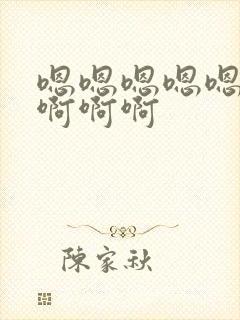 嗯嗯嗯嗯嗯
啊啊啊
陳家秋